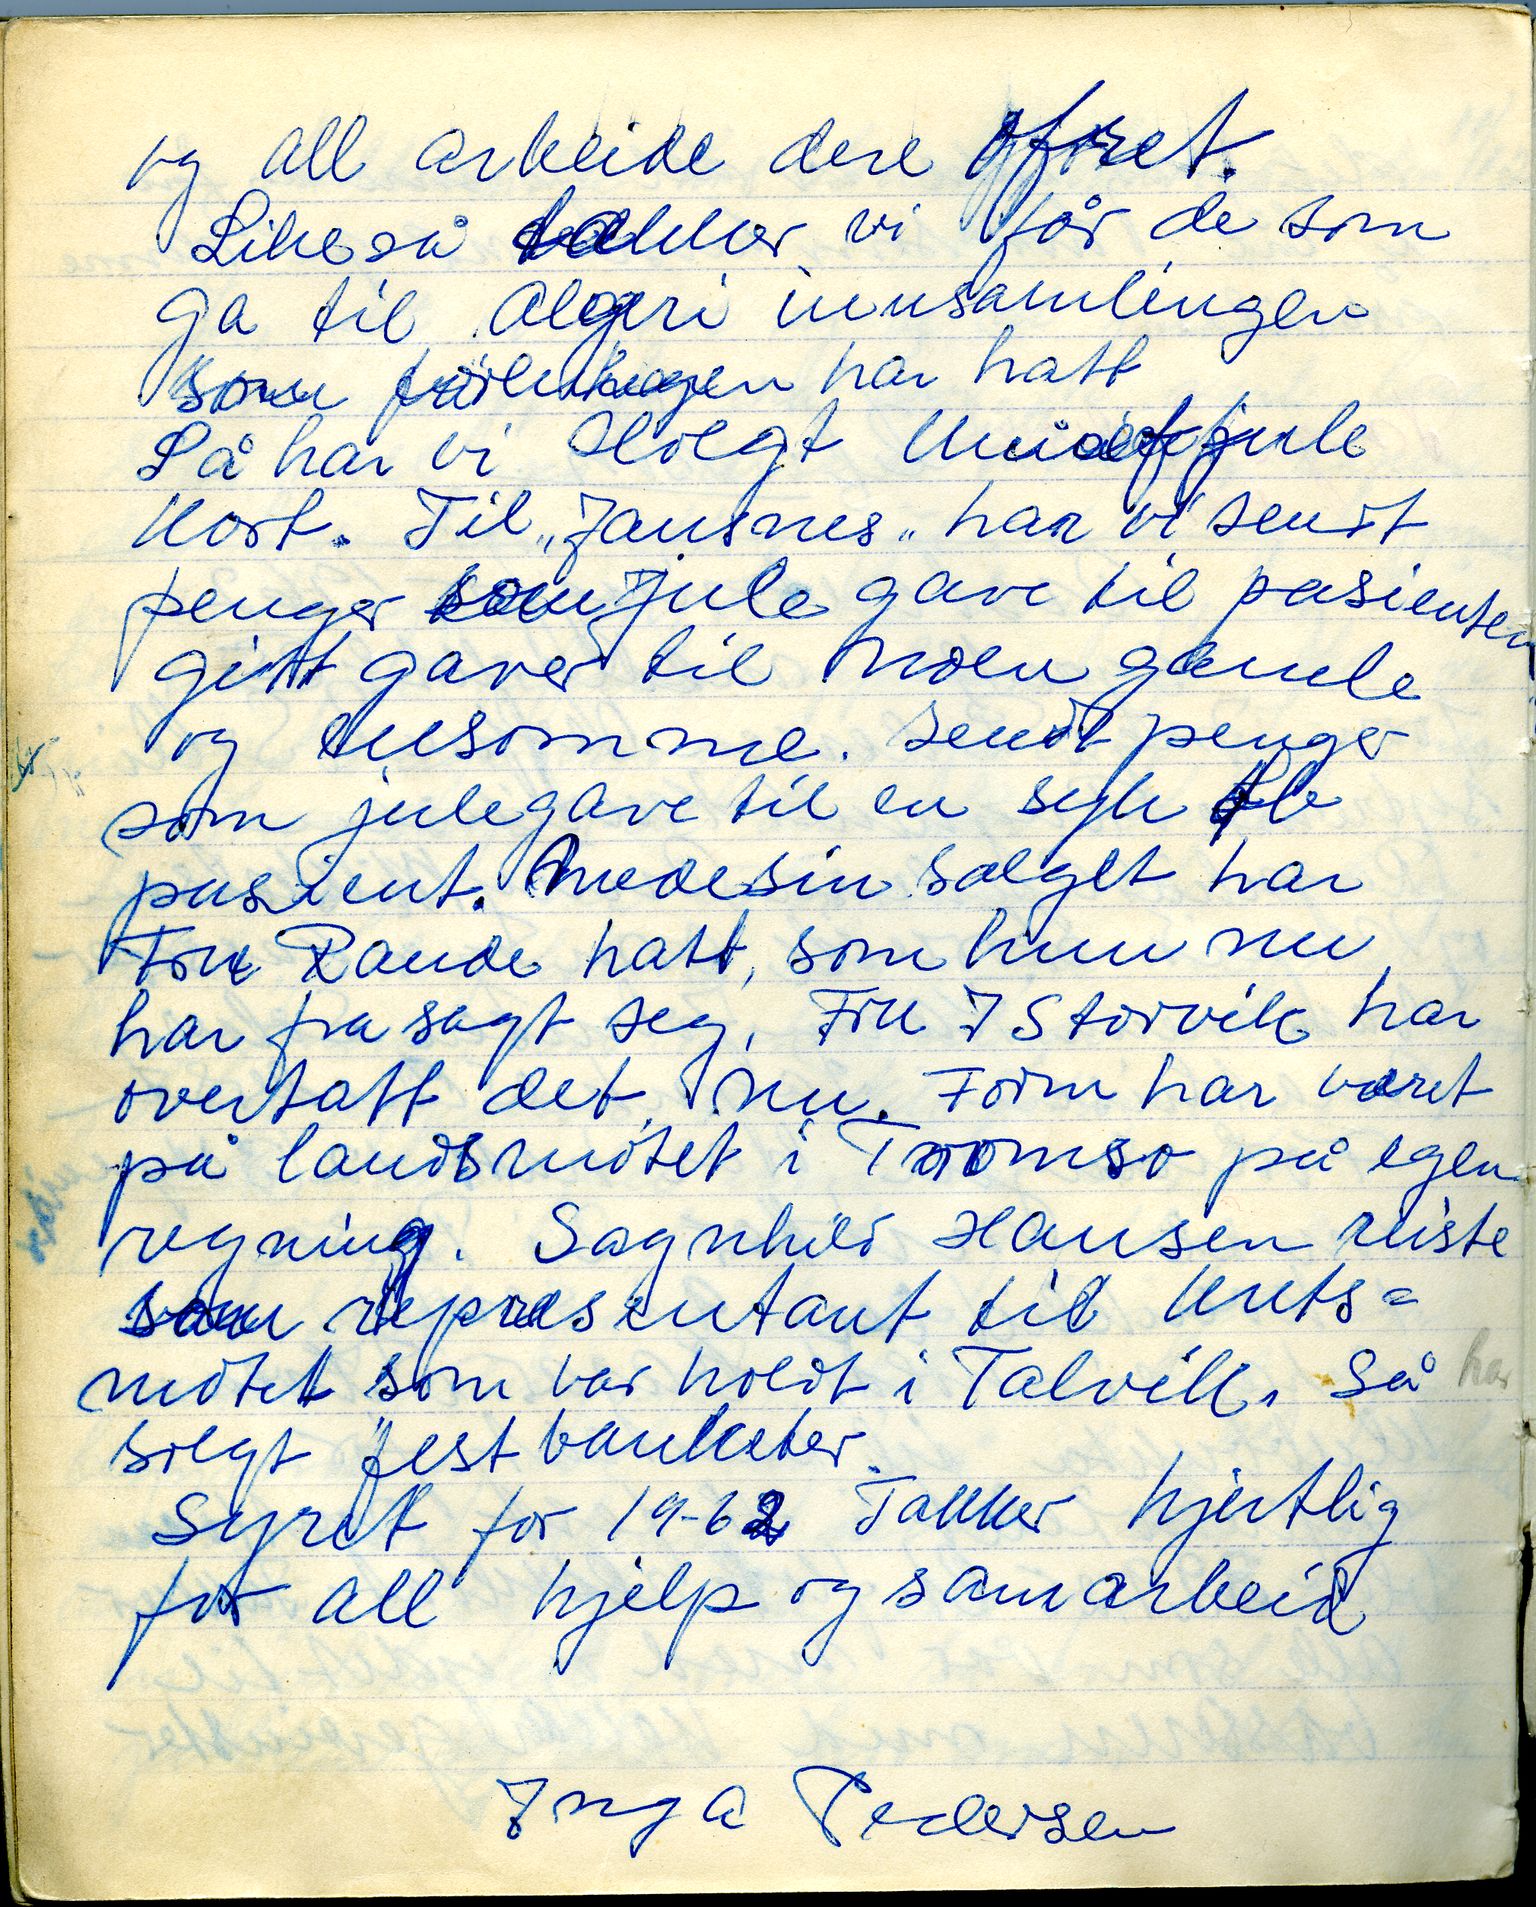 og all arbeide dere offret.
Likeså takker vi får de som
ga til Algeri innsamlingen
som foreningen har hatt
Så har vi solgt jule
kort. Til „Jansnes" har vi sendt
penger som jule gave til pasienten
gitt gaver til noen gamle
og ensomme. sendt penger
som julegave til en syk tb
pasient. Medesin salget har
Fru Rande hatt, som hun nu
har fra sagt seg, Fru J Storvik har
overtatt det nu. Form har været
på landsmøtet i Tromsø på egen
regning. Sagnhild Hansen reiste
som representant til krets=
møtet som var holdt i Talvik. Så har
solgt fest banketer.
Syret for 19-62 Takker hjertlig
for all hjelp og samarbeid
Inga Pedersen